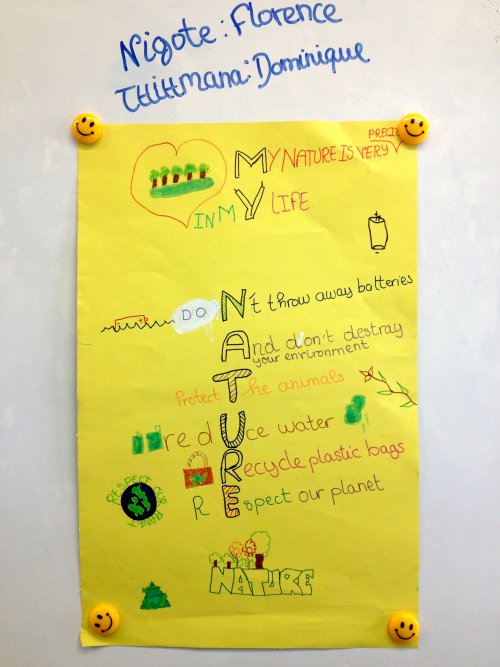 Nigote: Florence
THittmana: Dominique
PRECI
MY NATURE IS VERY
IN MY LIFE
DON't throw away batteries
And don't destray
your environment
Protect The animals
reduce water
Recycle plastic bags
REspect our planet
RESPECT OUR PLANET
NATURE